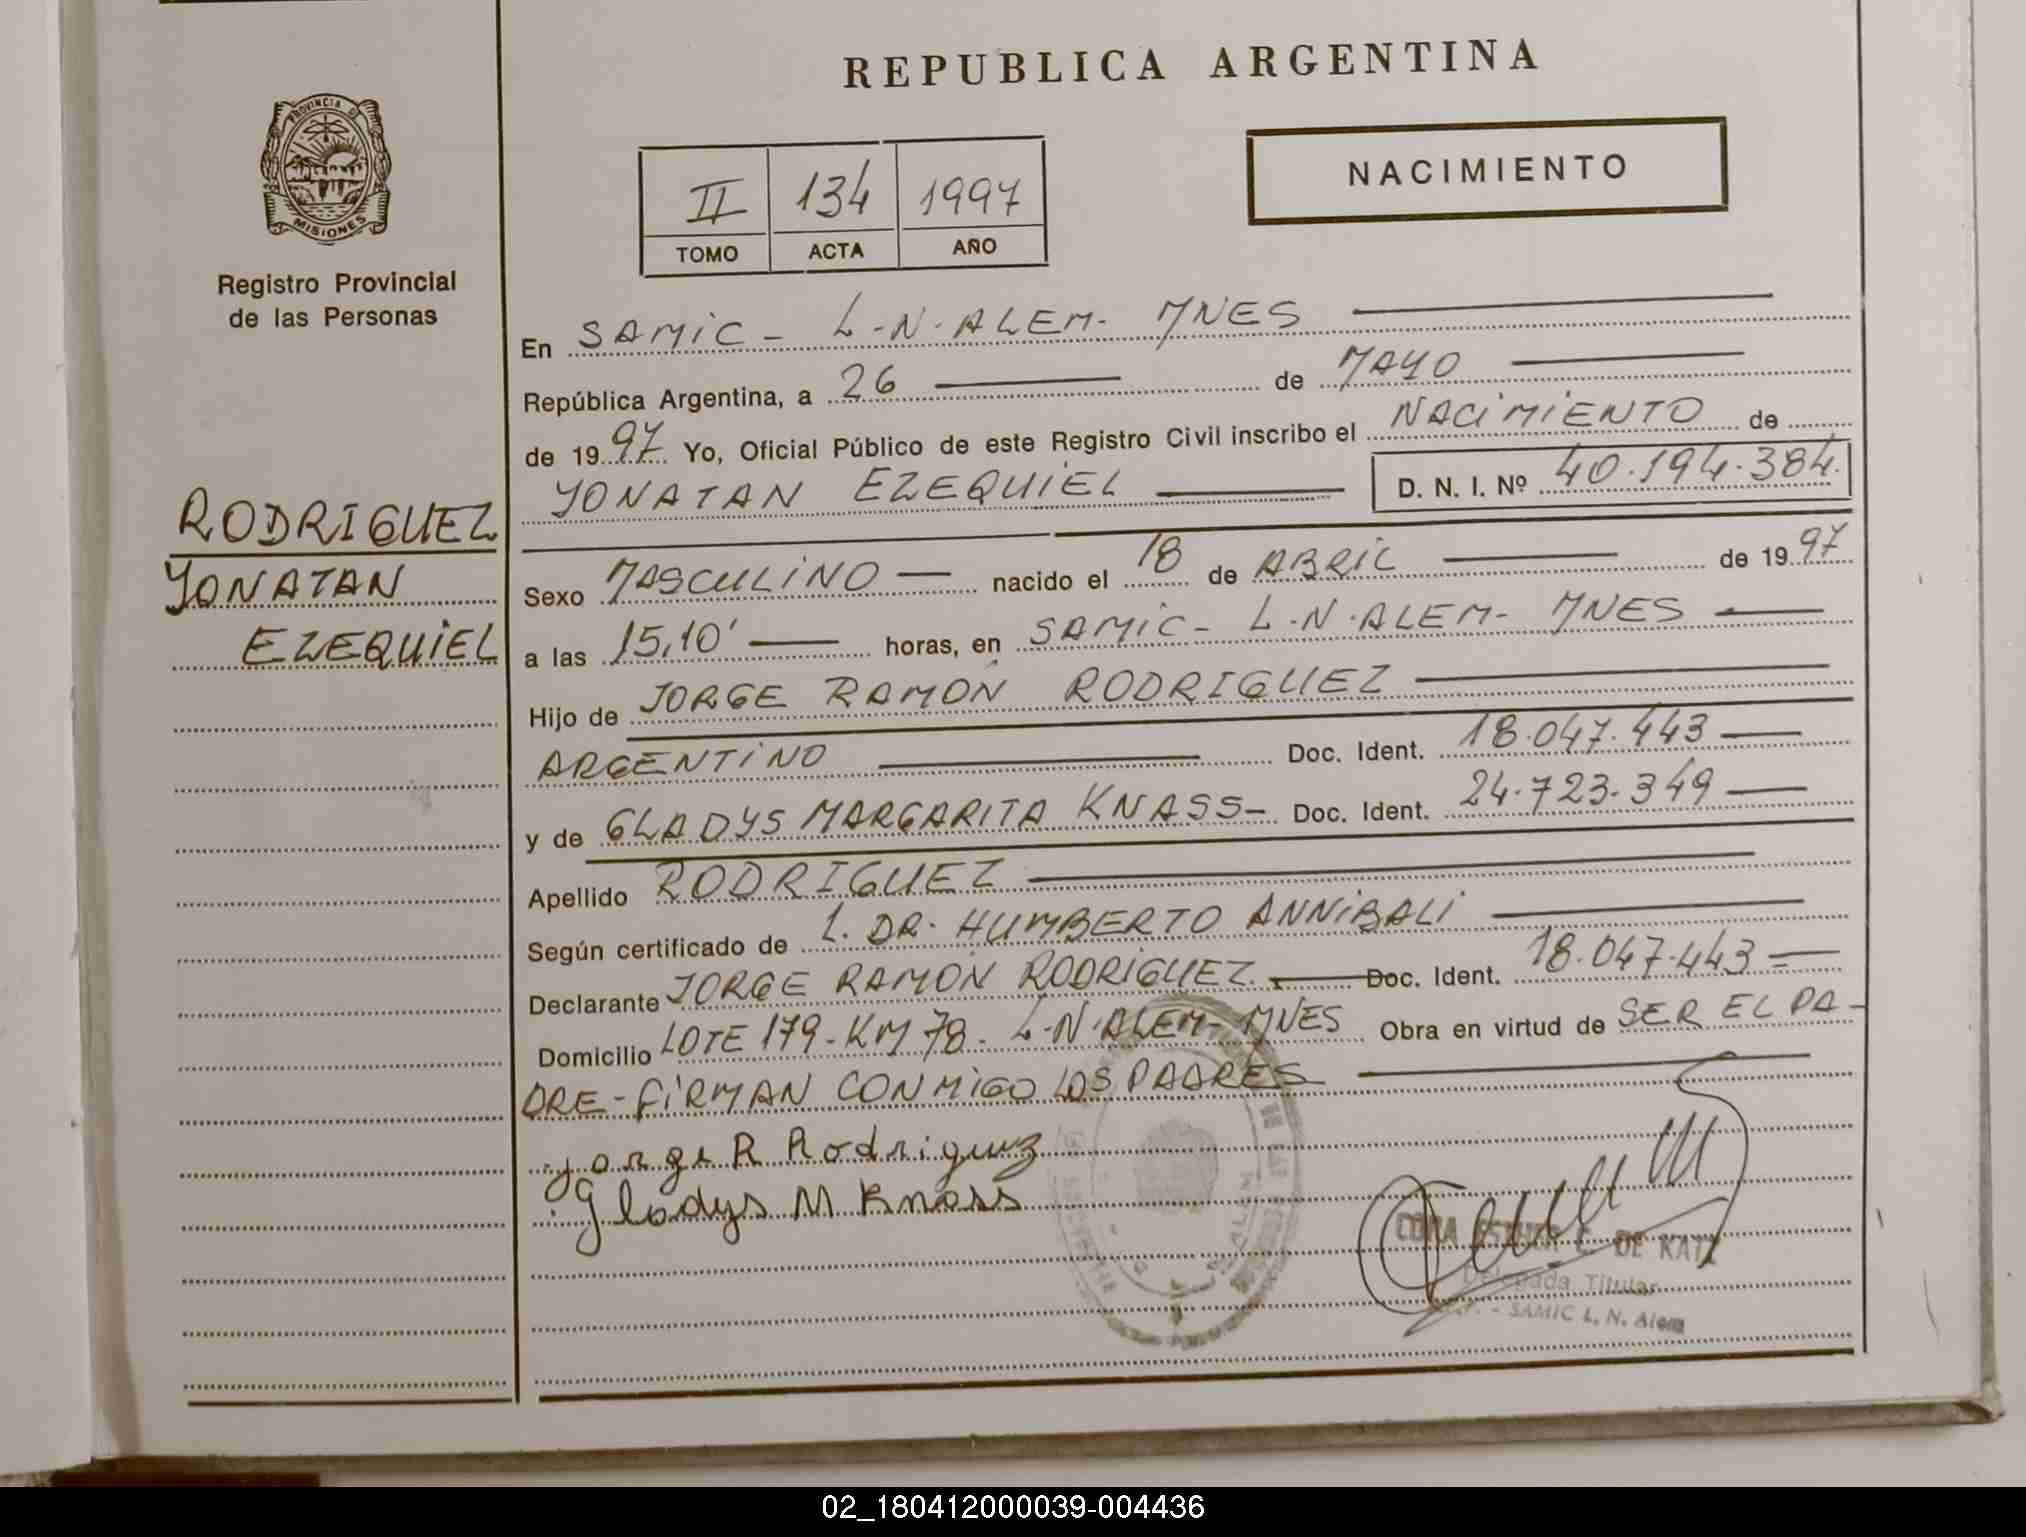 REPUBLICA ARGENTINA
PROVINCIA DE
MISIONES
Registro Provincial
de las Personas
II 134 1997
TOMO ACTA AÑO
NACIMIENTO
RODRIGUEZ
YONATAN
EZEQUIEL
En SAMIC - L-N-ALEM- MNES
República Argentina, a 26 de MAYO
de 1997 Yo, Oficial Público de este Registro Civil inscribo el NACIMIENTO de
YONATAN EZEQUIEL D. N. I. Nº 40.194.384.
Sexo MASCULINO nacido el 18 de ABRIL de 1997
a las 15,10' horas, en SAMIC - L-N-ALEM- MNES
Hijo de JORGE RAMÓN RODRIGUEZ
ARGENTINO Doc. Ident. 18.047.443
y de GLADYS MARGARITA KNASS - Doc. Ident. 24.723.349
Apellido RODRIGUEZ
Según certificado de L. DR. HUMBERTO ANNIBALI
Declarante JORGE RAMÓN RODRIGUEZ. Doc. Ident. 18.047.443
Domicilio LOTE 179 - KM 78 - L-N-ALEM- MNES Obra en virtud de SER EL PA-
DRE - FIRMAN CONMIGO LOS PADRES
Jorge R Rodriguez
Gladys M Knass
DE KATZ
Delegada Titular
- SAMIC L. N. Alem
02_180412000039-004436